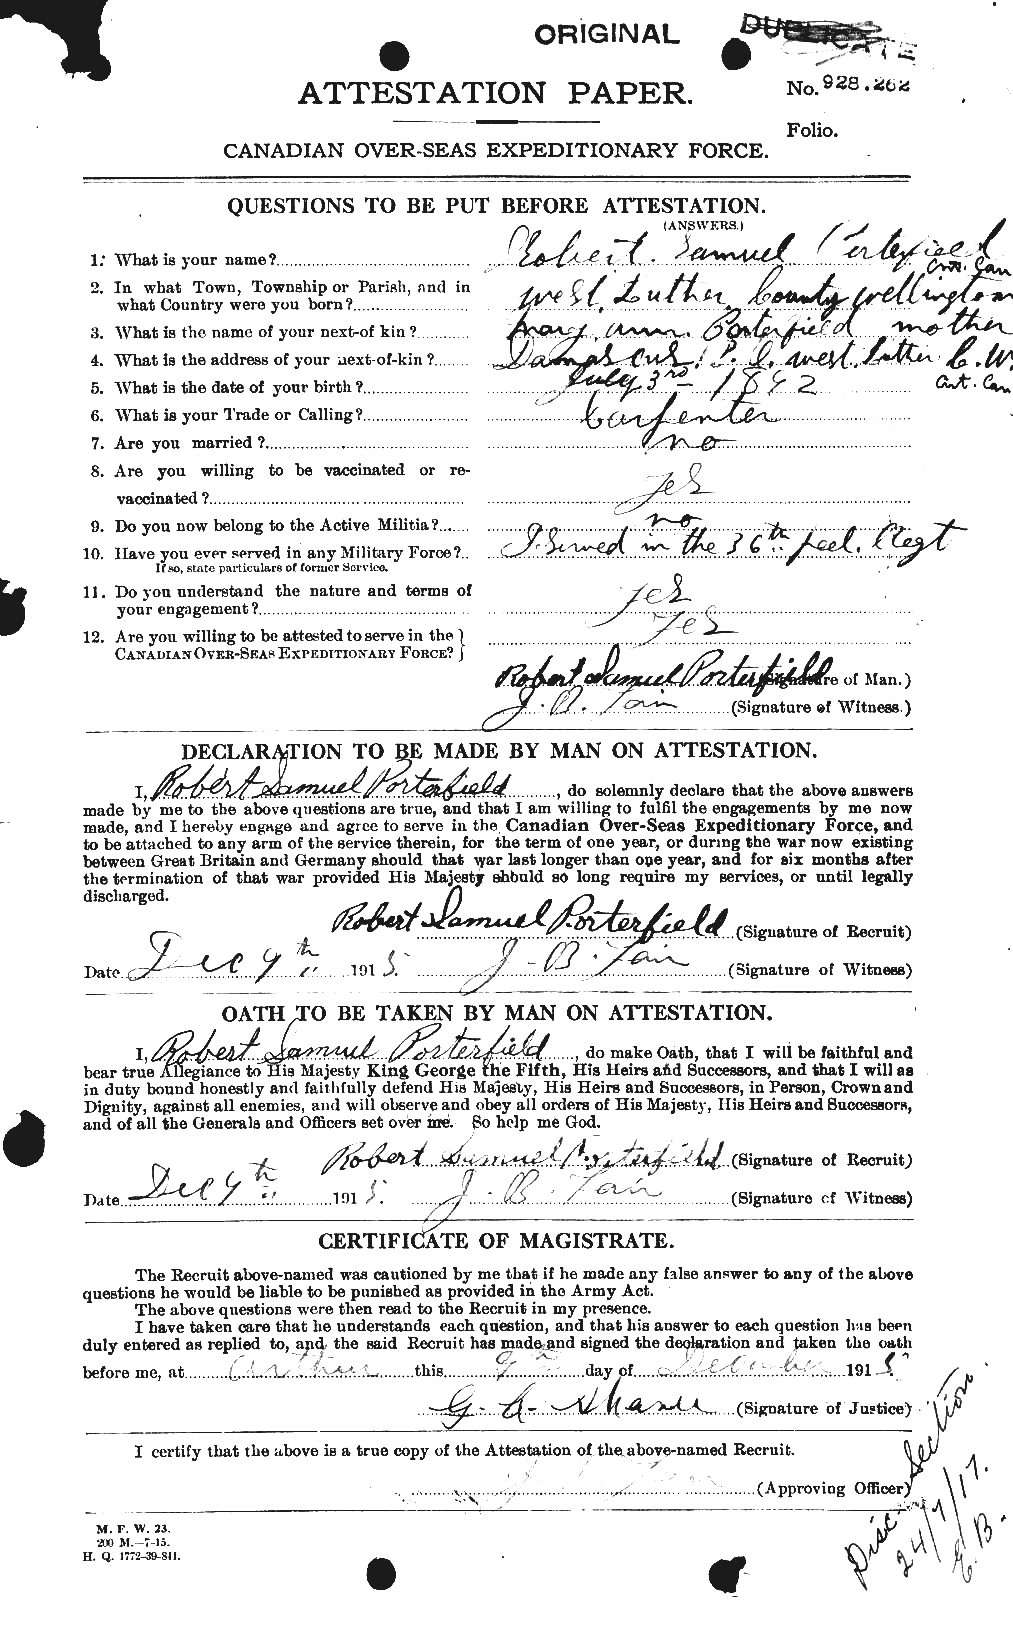 ORIGINAL
DUPLICATE
ATTESTATION PAPER.
No. 928.262
Folio.
CANADIAN OVER-SEAS EXPEDITIONARY FORCE.
QUESTIONS TO BE PUT BEFORE ATTESTATION.
(ANSWERS.)
1. What is your name? Robert Samuel Porterfield
Ont. Can
2. In what Town, Township or Parish, and in
what Country were you born? West Luther County Wellington
3. What is the name of your next-of kin? Mary Ann Porterfield mother
4. What is the address of your next-of-kin? Damascus P.O. West Luther C.W.
5. What is the date of your birth? July 3rd 1892 Ont. Can
6. What is your Trade or Calling? Carpenter
7. Are you married? no
8. Are you willing to be vaccinated or re-
vaccinated? yes
9. Do you now belong to the Active Militia? no
10. Have you ever served in any Military Force? I Served in the 36th peel. Regt
If so, state particulars of former Service.
11. Do you understand the nature and terms of
your engagement? yes
12. Are you willing to be attested to serve in the } yes
CANADIAN OVER-SEAS EXPEDITIONARY FORCE? }
Robert Samuel Porterfield (Signature of Man.)
J. B. Tain (Signature of Witness.)
DECLARATION TO BE MADE BY MAN ON ATTESTATION.
I, Robert Samuel Porterfield, do solemnly declare that the above answers
made by me to the above questions are true, and that I am willing to fulfil the engagements by me now
made, and I hereby engage and agree to serve in the Canadian Over-Seas Expeditionary Force, and
to be attached to any arm of the service therein, for the term of one year, or during the war now existing
between Great Britain and Germany should that war last longer than one year, and for six months after
the termination of that war provided His Majesty should so long require my services, or until legally
discharged.
Robert Samuel Porterfield (Signature of Recruit)
Date Dec 9th 1915. J. B. Tain (Signature of Witness)
OATH TO BE TAKEN BY MAN ON ATTESTATION.
I, Robert Samuel Porterfield, do make Oath, that I will be faithful and
bear true Allegiance to His Majesty King George the Fifth, His Heirs and Successors, and that I will as
in duty bound honestly and faithfully defend His Majesty, His Heirs and Successors, in Person, Crown and
Dignity, against all enemies, and will observe and obey all orders of His Majesty, His Heirs and Successors,
and of all the Generals and Officers set over me. So help me God.
Robert Samuel Porterfield (Signature of Recruit)
Date Dec 9th 1915. J. B. Tain (Signature of Witness)
CERTIFICATE OF MAGISTRATE.
The Recruit above-named was cautioned by me that if he made any false answer to any of the above
questions he would be liable to be punished as provided in the Army Act.
The above questions were then read to the Recruit in my presence.
I have taken care that he understands each question, and that his answer to each question has been
duly entered as replied to, and the said Recruit has made and signed the declaration and taken the oath
before me, at Arthur this 9th day of December 1915
G. A. (Signature of Justice)
I certify that the above is a true copy of the Attestation of the above-named Recruit.
(Approving Officer)
M. F. W. 23.
200 M.—7-15.
H. Q. 1772-39-841.
Disc. Section
24/7/17.
E.B.